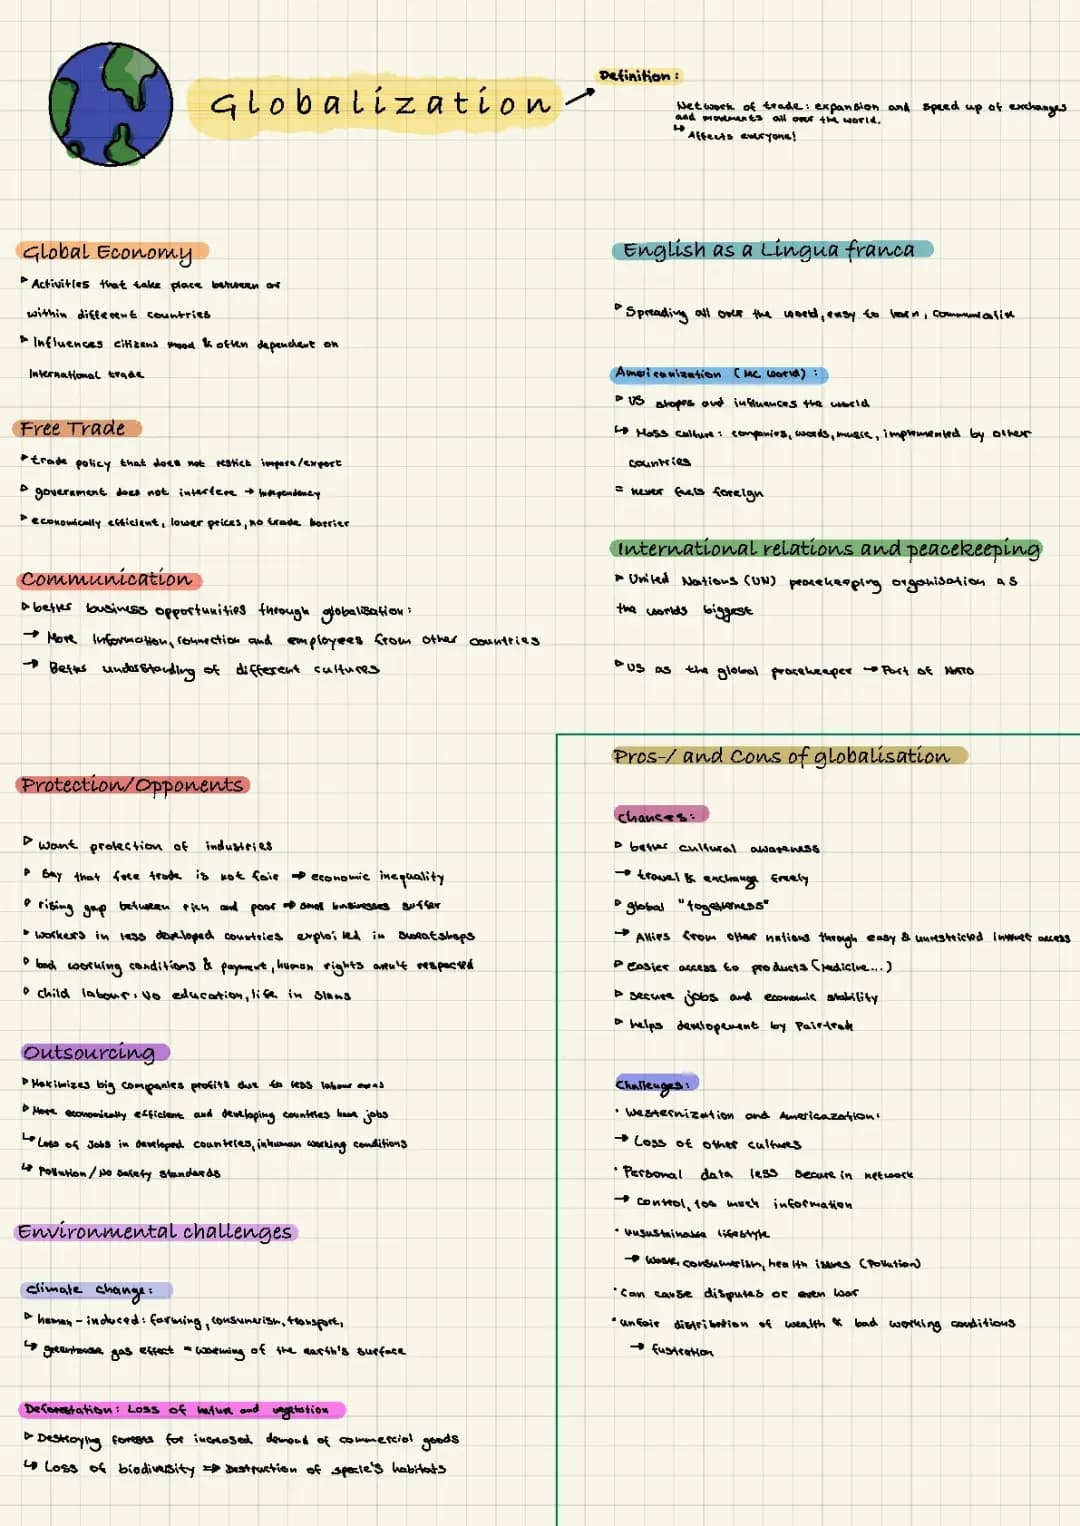 Globalization
Definition:
Network of trade: expansion and speed up of exchanges
and movements all over the world.
↳ Affects everyone!
Global Economy
▹ Activities that take place between or
within different countries
▹ Influences citizens mood & often dependent on
International trade
Free Trade
▹ trade policy that does not restict import/export
▹ government does not interfere → Independency
▹ economically efficient, lower prices, no trade barrier
Communication
▹ better business opportunities through globalisation:
→ More Information, connection and employees from other countries
→ Better understanding of different cultures
Protection/Opponents
▹ Want protection of industries
▹ Say that free trade is not fair ⇒ economic inequality
▹ rising gap between rich and poor ⇒ small businesses suffer
▹ workers in less developed countries exploited in sweatshops
▹ bad working conditions & payment, human rights aren't respected
▹ child labour: No education, life in slums
Outsourcing
▹ Maximizes big companies profits due to less labour
▹ More economically efficient and developing countries have jobs
↳ Loss of Jobs in developed countries, inhuman working conditions
↳ Pollution / No safety standards
Environmental challenges
Climate change:
▹ human-induced: farming, consumerism, transport,
↳ greenhouse gas effect = warming of the earth's surface
Deforestation: Loss of nature and vegetation
▹ Destroying forests for increased demand of commercial goods
↳ Loss of biodiversity ⇒ Destruction of specie's habitats
English as a Lingua franca
▹ Spreading all over the world, easy to learn,
Americanization (MC World):
▹ US shapes and influences the world
↳ Mass culture: companies, words, music, implemented by other
countries
= never feels foreign
International relations and peacekeeping
▹ United Nations (UN) peacekeeping organisation as
the worlds biggest
▹ US as the global peacekeeper → Part of NATO
Pros-/ and Cons of globalisation
Chances:
▹ better cultural awareness
→ travel & exchange freely
▹ global "togetherness"
→ Allies from other nations through easy & unrestricted internet access
▹ Easier access to products (Medicine...)
▹ secure jobs and economic stability
▹ helps developement by
Challenges:
· Westernization and Americazation:
→ Loss of other cultures
· Personal data less secure in network
→ control, too much information
· unsustainable lifestyle
→ Waste, consumerism, health issues (Pollution)
· Can cause disputes or even war
· unfair distribution of wealth & bad working conditions
→ fustration